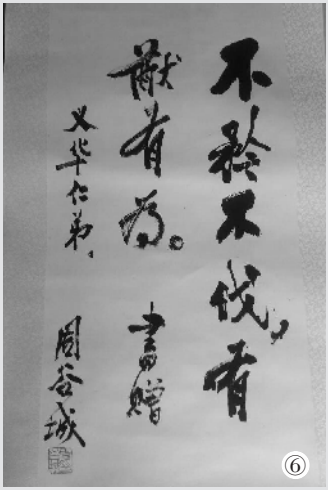 不矜不伐，有
猷有為。書贈
义华仁弟、
周谷城
⑥